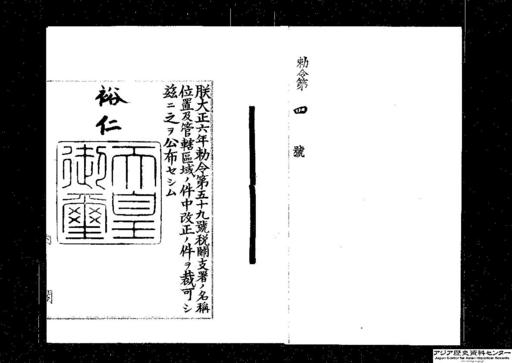 勅令第四號
朕大正六年勅令第五十九號税關支署ノ名稱
位置及管轄區域ノ件中改正ノ件ヲ裁可シ
茲ニ之ヲ公布セシム
裕仁
天皇
御璽
内閣
アジア歴史資料センター
Japan Center for Asian Historical Records